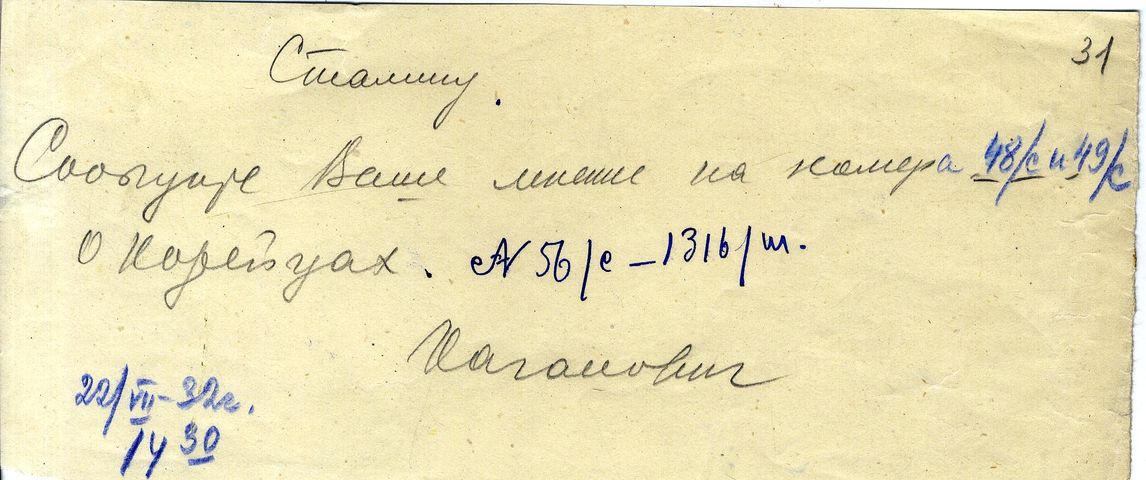 31
Сталину.
Сообщите Ваше мнение на номера 48/с и 49/с
о Корейцах. № 56/с – 1316/ш.
Каганович
22/VII – 32 г.
14 30